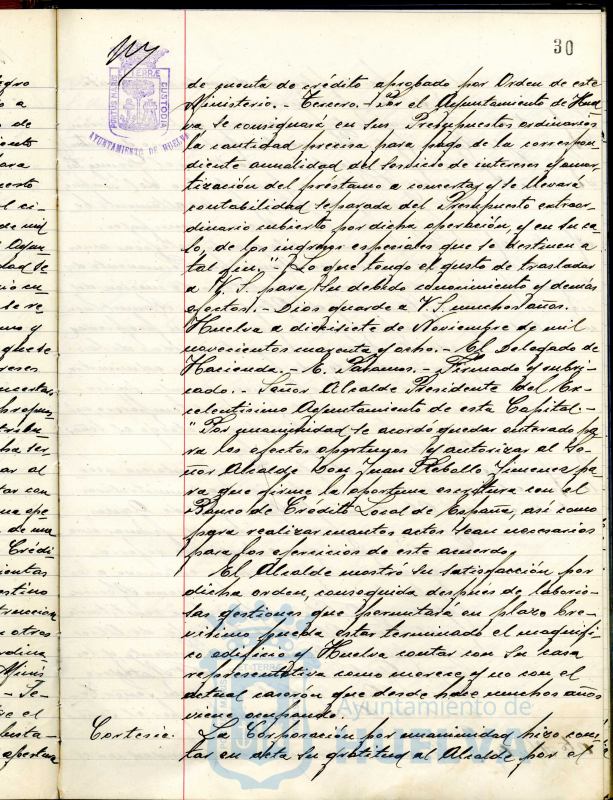 30
PORTUS MARIS ET TERRAE CUSTODIA
AYUNTAMIENTO DE HUELVA
de cuenta de crédito aprobado por Orden de este
Ministerio. - Tercero. - Por el Ayuntamiento de Huel
va se consignará en sus Presupuestos ordinarios
la cantidad precisa para pago de la correspon
diente anualidad del servicio de intereses y amor
tización del préstamo a concertar y se llevará
contabilidad separada del Presupuesto extraor
dinario cubierto por dicha operación, y en su ca
so, de los ingresos especiales que se destinen a
tal fin". - Lo que tengo el gusto de trasladar
a V. S. para su debido conocimiento y demás
efectos. - Dios guarde a V. S. muchos años.
Huelva a diecisiete de Noviembre de mil
novecientos cuarenta y ocho. - El Delegado de
Hacienda. - Firmado y rubri
cado. - Señor Alcalde Presidente del Ex
celentísimo Ayuntamiento de esta Capital. -
"Por unanimidad se acordó quedar enterado pa
ra los efectos oportunos y autorizar al Se
ñor Alcalde Don Juan Rebollo Jimenez pa
ra que firme la oportuna escritura con el
Banco de Crédito Local de España, así como
para realizar cuantos actos sean necesarios
para los ejercicios de este acuerdo,
El Alcalde mostró su satisfacción por
dicha orden, conseguida despues de laborio-
sas gestiones que permitará en plazo bre-
vísimo pueda estar terminado el magnífi-
co edificio y Huelva contar con su casa
representativa como merece, y no con el
actual caserón que desde hace muchos años
viene ocupando.
Cortesia. La Corporación por unanimidad hizo cons
tar en acta su gratitud al Alcalde por el
Ayuntamiento de
HUELVA